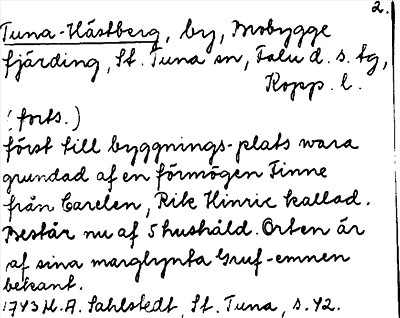 2.
Tuna-Hästberg, by, Mobygge
fjärding, St. Tuna sn, Falu d. s. tg,
Kopp. l.
(forts.)
först till byggnings-plats wara
grundad af en förmögen Finne
från Carelen, Rik Hinric kallad.
Består nu af 5 hushåld. Orten är
af sina marglynta Gruf-emnen
bekant.
1743 M. A. Sahlstedt, St. Tuna, s. 42.